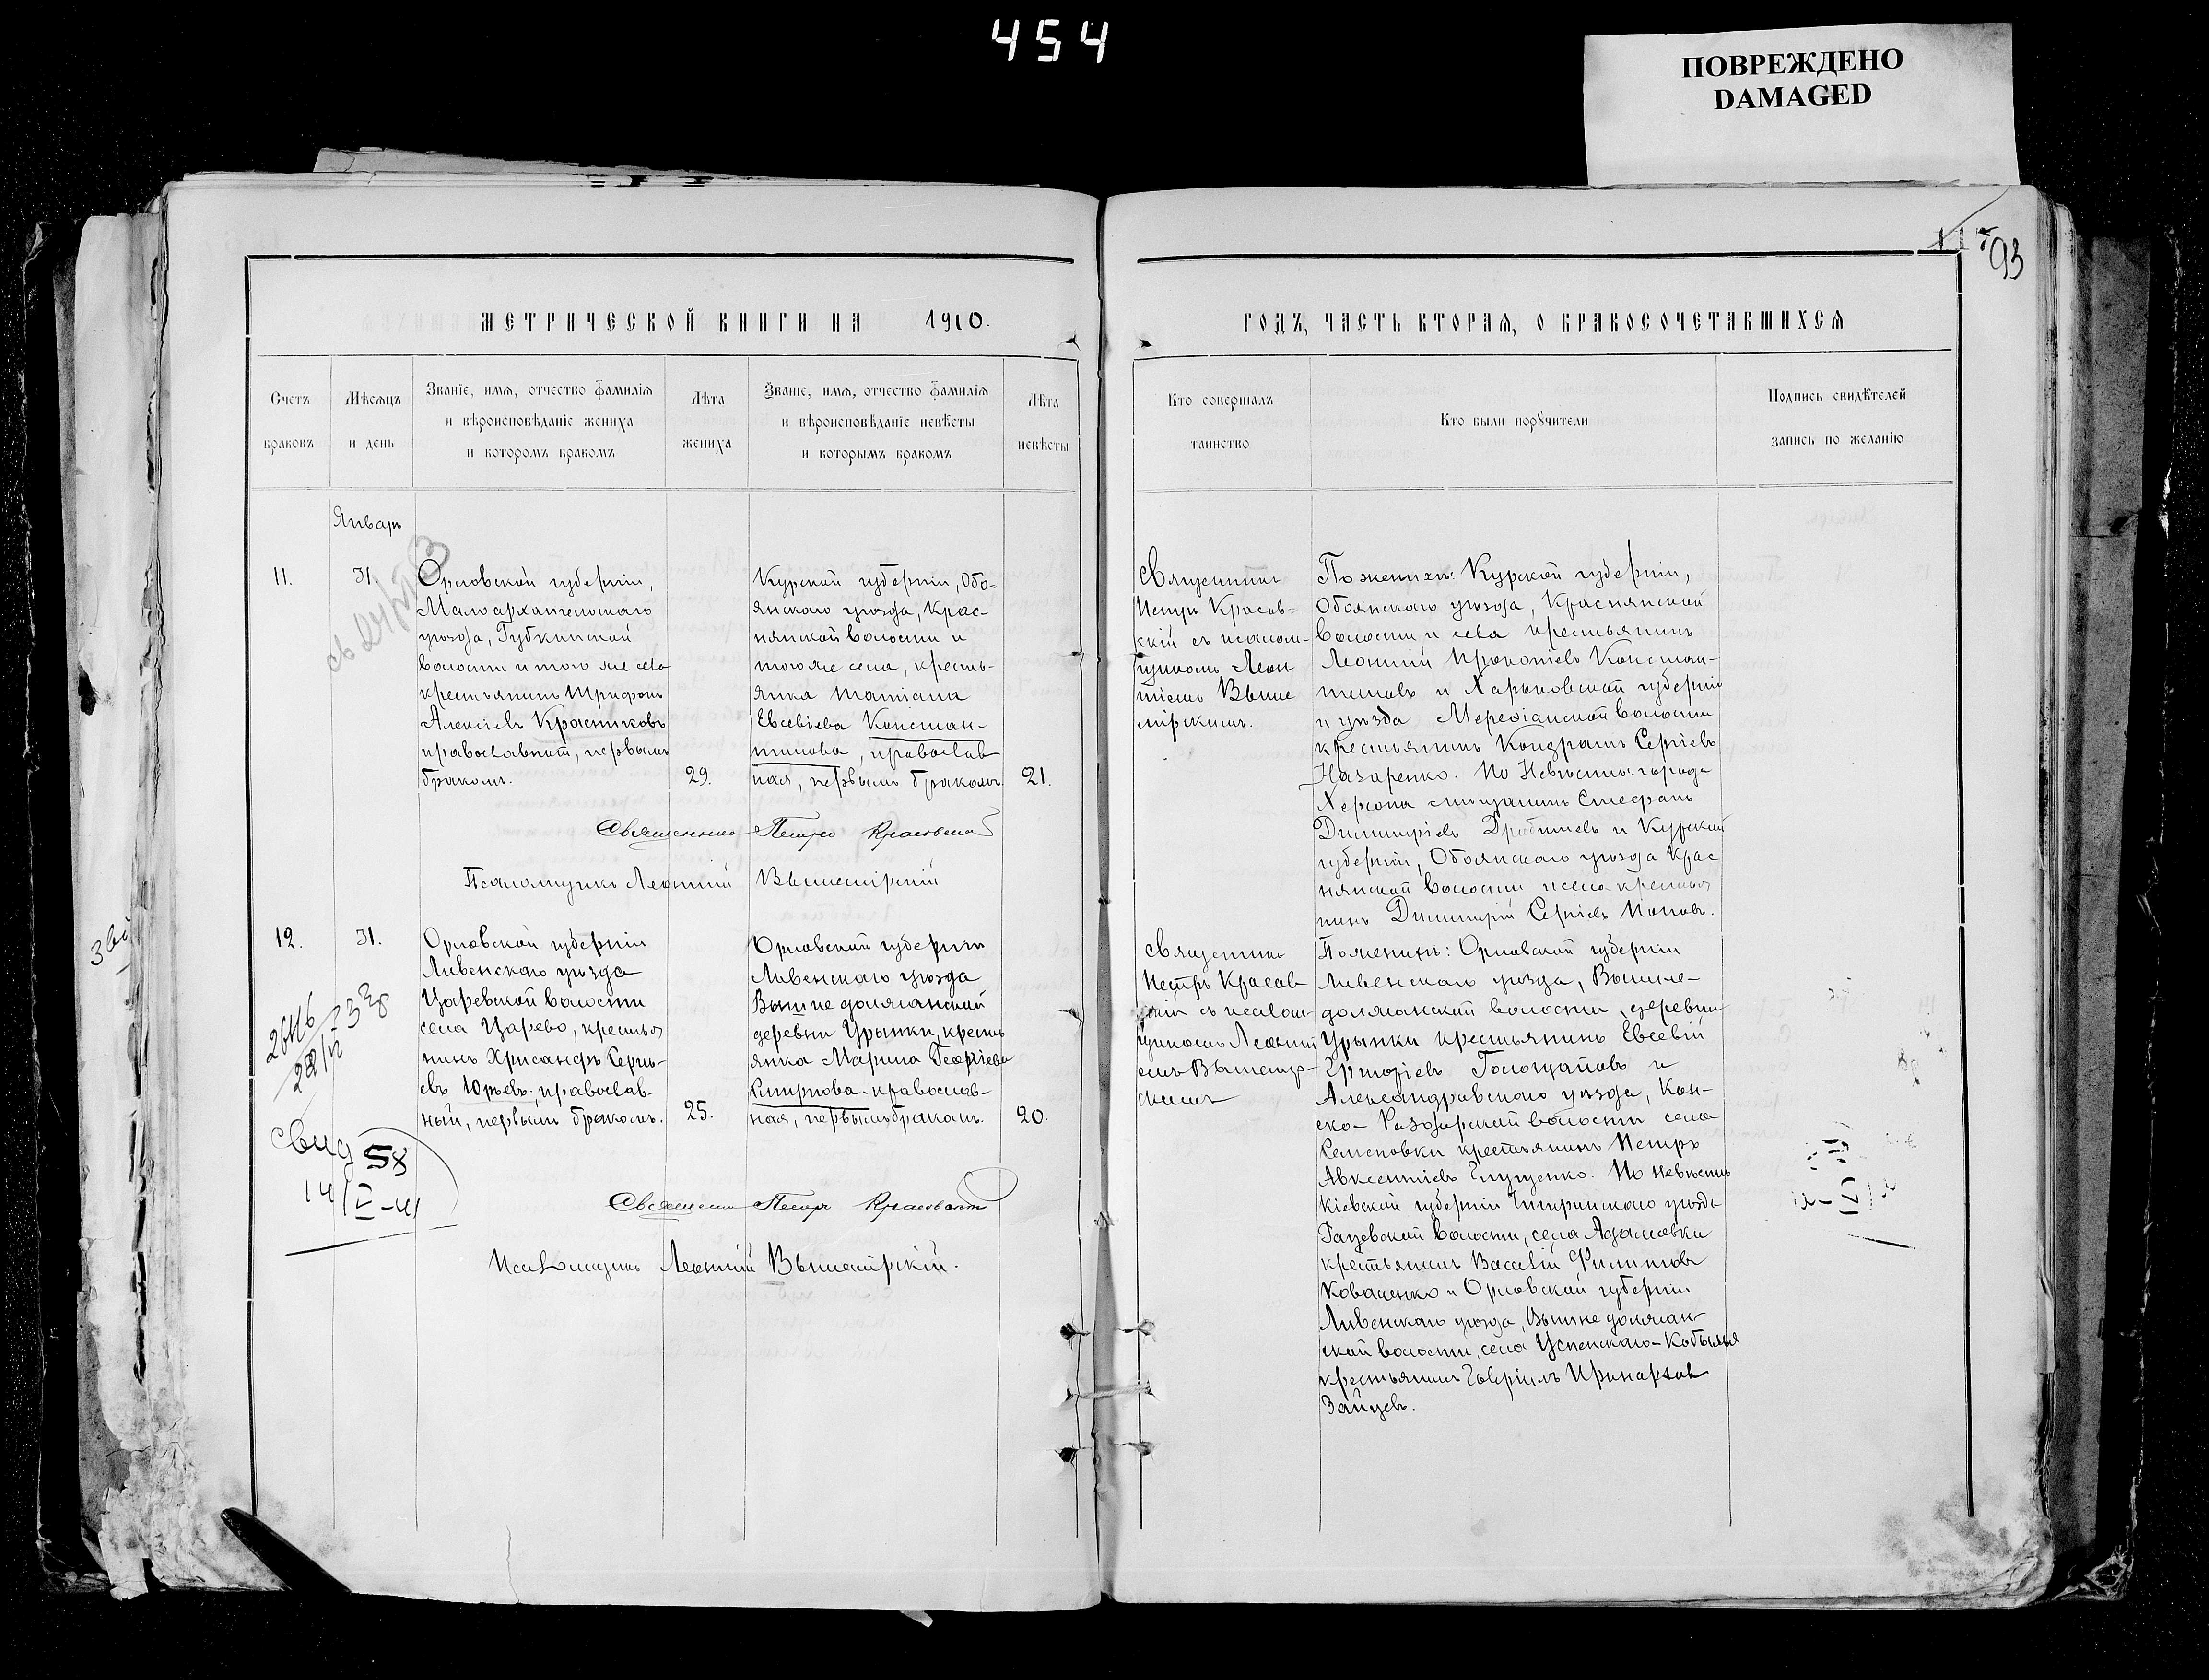 454
ПОВРЕЖДЕНО
DAMAGED
93
МЕТРИЧЕСКОЙ КНИГИ НА 1910.
ГОДЪ, ЧАСТЬ ВТОРАЯ, О БРАКОСОЧЕТАВШИХСЯ
Счетъ
браковъ
Мѣсяцъ
и день
Званіе, имя, отчество фамилія
и вѣроисповѣданіе жениха
и которомъ бракомъ
Лѣта
жениха
Званіе, имя, отчество фамилія
и вѣроисповѣданіе невѣсты
и которымъ бракомъ
Лѣта
невѣсты
Кто совершалъ
таинство
Кто были порꙋчители
Подпись свидѣтелей
запись по желанію
Январь
11.
31.
Орловской губерніи,
Малоархангельскаго
уѣзда, Губкинской
волости и того же села
крестьянинъ Трифонъ
Алексіевъ Красниковъ
православный, первымъ
бракомъ.
29.
Курской губерніи, Обо-
янскаго уѣзда, Крас-
нянской волости и
того же села, кресть-
янка Татіана
Евсевіева Констан-
тинова, православ
ная, первымъ бракомъ.
21.
Священникъ Петръ Красовскій
Псаломщикъ Леонтій Вышемірскій
Священникъ
Петръ Красов-
скій съ псалом-
щикомъ Леон
тіемъ Выше
мірскимъ.
По женихѣ: Курской губерніи,
Обоянскаго уѣзда, Краснянской
волости и села крестьянинъ
Леонтій Прокопіевъ Констан-
тиновъ и Харьковской губерніи
и уѣзда Мерефіанской волости
крестьянинъ Кондратъ Сергіевъ
Назаренко. По Невѣстѣ: города
Херсона мѣщанинъ Стефанъ
Димитріевъ и Курской
губерніи, Обоянскаго уѣзда Крас
нянской волости и села крестья
нинъ Димитрій Сергіевъ Поповъ.
12.
31.
Орловской губерніи
Ливенскаго уѣзда
Царевской волости
села Царево, крестья
нинъ Хрисанфъ Серги-
евъ Юрьевъ, православ-
ный, первымъ бракомъ.
25.
Орловской губерніи
Ливенскаго уѣзда
Вышнедолжанской
деревни Урынки, кресть
янка Марина Георгіева
Смирнова православ-
ная, первымъ бракомъ.
20.
Священникъ Петръ Красовскій
Псаломщикъ Леонтій Вышемірскій.
Священникъ
Петръ Красов
скій съ псалом-
щикомъ Леонті
емъ Вышемір-
скимъ
По женихѣ: Орловской губерніи
Ливенскаго уѣзда, Вышне-
должанской волости, деревни
Урынки крестьянинъ Евсевій
Голощаповъ и
Александровскаго уѣзда, Кон-
ско-Раздорской волости села
Семеновки крестьянинъ Петръ
Авксентіевъ Глущенко. По невѣстѣ
Кіевской губерніи Чигиринскаго уѣзда
волости, села Адамовки
крестьянинъ Василій Филиповъ
Коваленко и Орловской губерніи
Ливенскаго уѣзда, Вышнедолжан
ской волости, села Успенскаго-Кобылья
крестьянинъ Гавріилъ Иринарховъ
Зайцевъ.
свид 58
14/V-41